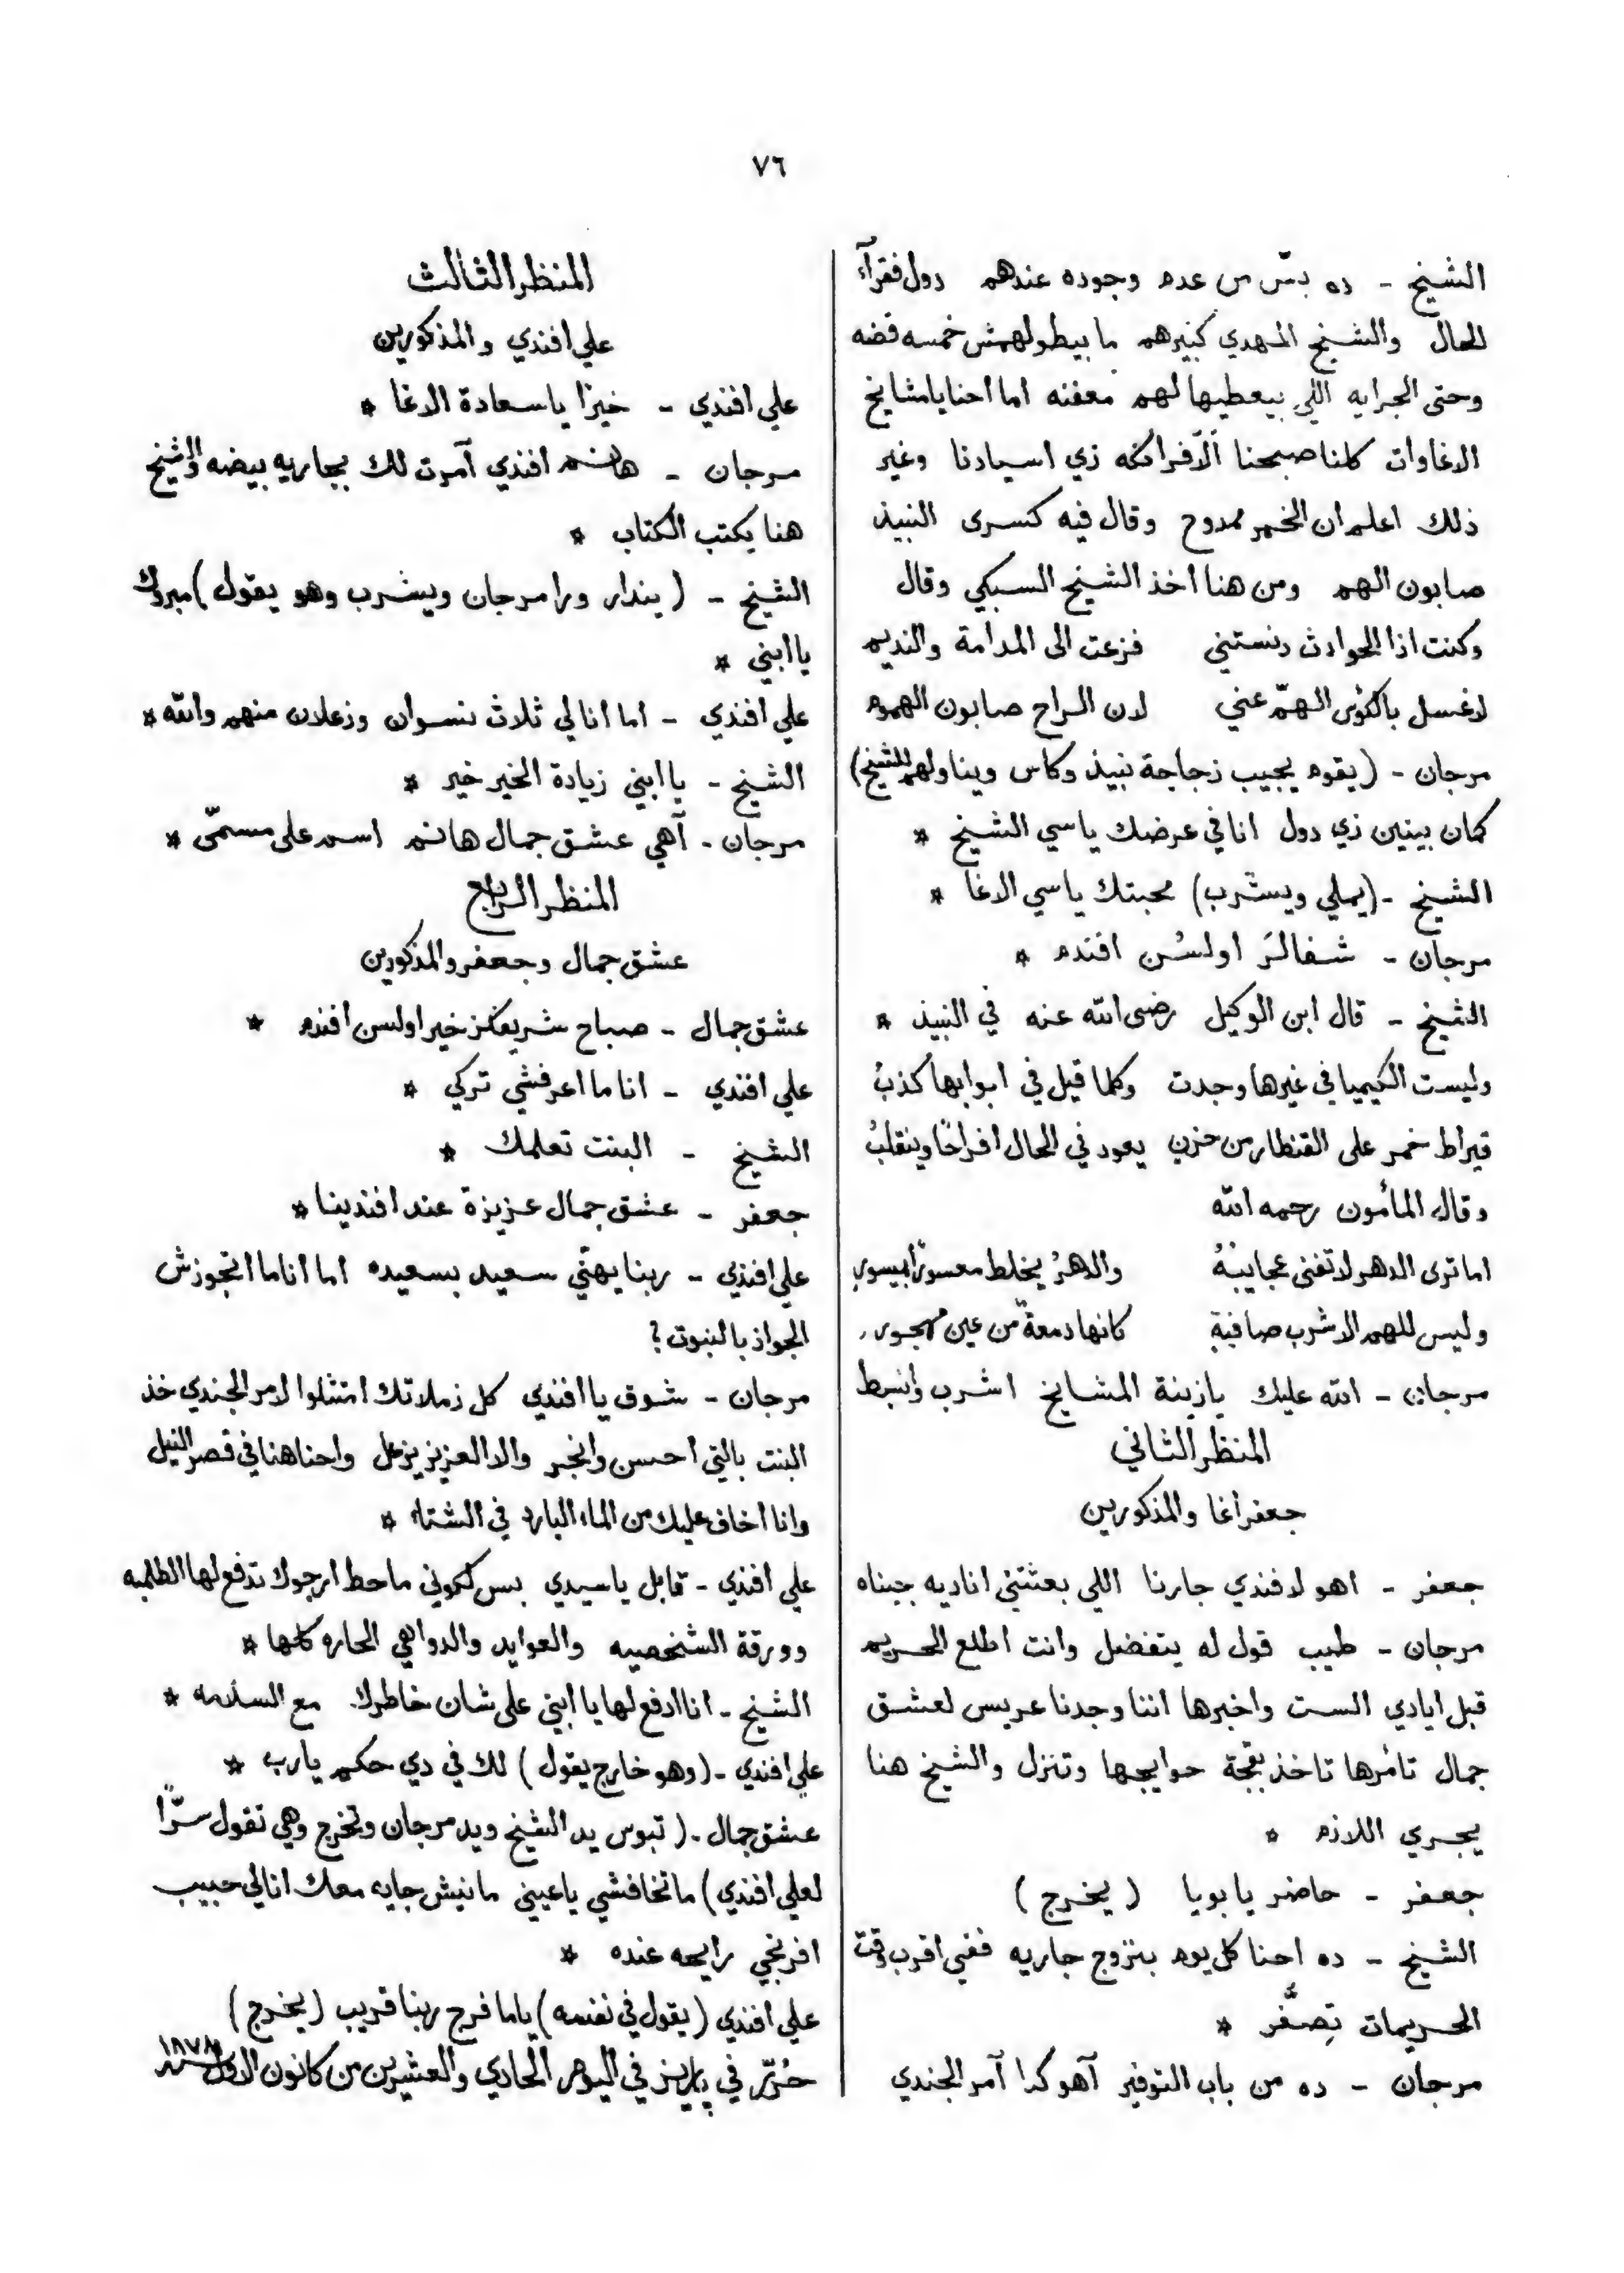 ٧٦
الشيخ - ده بسّ من عدم وجوده عندهم دول فقرآء
الحال والشيخ المهدي كبيرهم ما بيطولهمش خمسه فضه
وحتى الجرايه اللي بيعطيها لهم معفنه اما احنا يا مشايخ
الاغاوات كلنا صبحنا الّافرانكه زي اسيادنا وغير
ذلك اعلم ان الخمر ممدوح وقال فيه كسرى النبيذ
صابون الهم ومن هنا اخذ الشيخ السبكي وقال
وكنت اذا الحوادث دنستني فزعت الى المدامة والنديم
لاغسل بالكؤس الهمّ عني لان الراح صابون الهموم
مرجان - (يقوم يجيب زجاجة نبيذ وكاس ويناولهم للشيخ)
كمان بيتين زي دول انا في عرضك يا سي الشيخ *
الشيخ - (يملي ويشرب) محبتك يا سي الاغا *
مرجان - شفالرَ اولسُن افندم *
الشيخ - قال ابن الوكيل رضى الله عنه في النبيذ *
وليست الكيميا في غيرها وجدت وكلما قيل في ابوابها كذبُ
قيراط خمر على القنطار من حزن يعود في الحال افراحًا وينقلبُ
وقال المأمون رحمه الله
اما ترى الدهر لا تفنى عجايبُهُ والدهرُ يخلط معسورًا بميسورِ
وليس للهم الا شرب صافيةٍ كانها دمعةٌ من عين مهجور
مرجان - الله عليك يا زينة المشايخ اشرب وانبسط
المنظر الثاني
جعفر اغا والمذكورين
جعفر - اهو لافندي جارنا اللي بعثتني اناديه جبناه
مرجان - طيب قول له يتفضل وانت اطلع الحريم
قبل ايادي الست واخبرها اننا وجدنا عريس لعشق
جمال تأمرها تاخذ بقجة حوايجها وتنزل والشيخ هنا
يجري اللازم *
جعفر - حاضر يا بويا (يخرج)
الشيخ - ده احنا كل يوم بنزوج جاريه ففي اقرب وقت
الحريمات تِصفَّر *
مرجان - ده من باب التوفير آهو كدا آمر الجندي
المنظر الثالث
علي افندي والمذكورين
علي افندي - خيرًا يا سعادة الاغا *
مرجان - هانم افندي آمرت لك بجاريه بيضه والشيخ
هنا يكتب الكتاب *
الشيخ - (يندار ورا مرجان ويشرب وهو يقول) مبروك
يا ابني *
علي افندي - اما انا لي ثلاث نسوان وزعلان منهم والله *
الشيخ - يا ابني زيادة الخير خير *
مرجان - آهي عشق جمال هانم اسم على مسمّى *
المنظر الرابع
عشق جمال وجعفر والمذكورين
عشق جمال - صباح شريفكز خير اولسن افندم *
علي افندي - انا ما اعرفشي تركي *
الشيخ - البنت تعلمك *
جعفر - عشق جمال عزيزة عند افندينا *
علي افندي - ربنا يهنّي سعيد بسعيده اما انا ما اتجوزش
الجواز بالنبوت ؟
مرجان - شوف يا افندي كل زملاتك امتثلوا لامر الجندي خذ
البنت بالتي احسن وانجر والا العزيز يزعل واحنا هنا في قصر النيل
وانا اخاف عليك من الماء البارد في الشتاء *
علي افندي - قابل يا سيدي بس لكوني ماحط ارجوك تدفع لها الطلبه
وورقة الشخصيه والعوايد والدواهي الحاره كلها *
الشيخ - انا ادفع لها يا ابني على شان خاطرك مع السلامه *
علي افندي - (وهو خارج يقول) لك في دي حكم يا رب *
عشق جمال - (تبوس يد الشيخ ويد مرجان وتخرج وهي تقول سرًّا
لعلي افندي) ما تخافشي يا عيني مانيش جايه معك انا لي حبيب
افرنجي رايحه عنده *
علي افندي (يقول في نفسه) ياما فرج ربنا قريب (يخرج)
حُرّر في پاريز في اليوم الحادي والعشرين من كانون الاول سنة ١٨٧٨